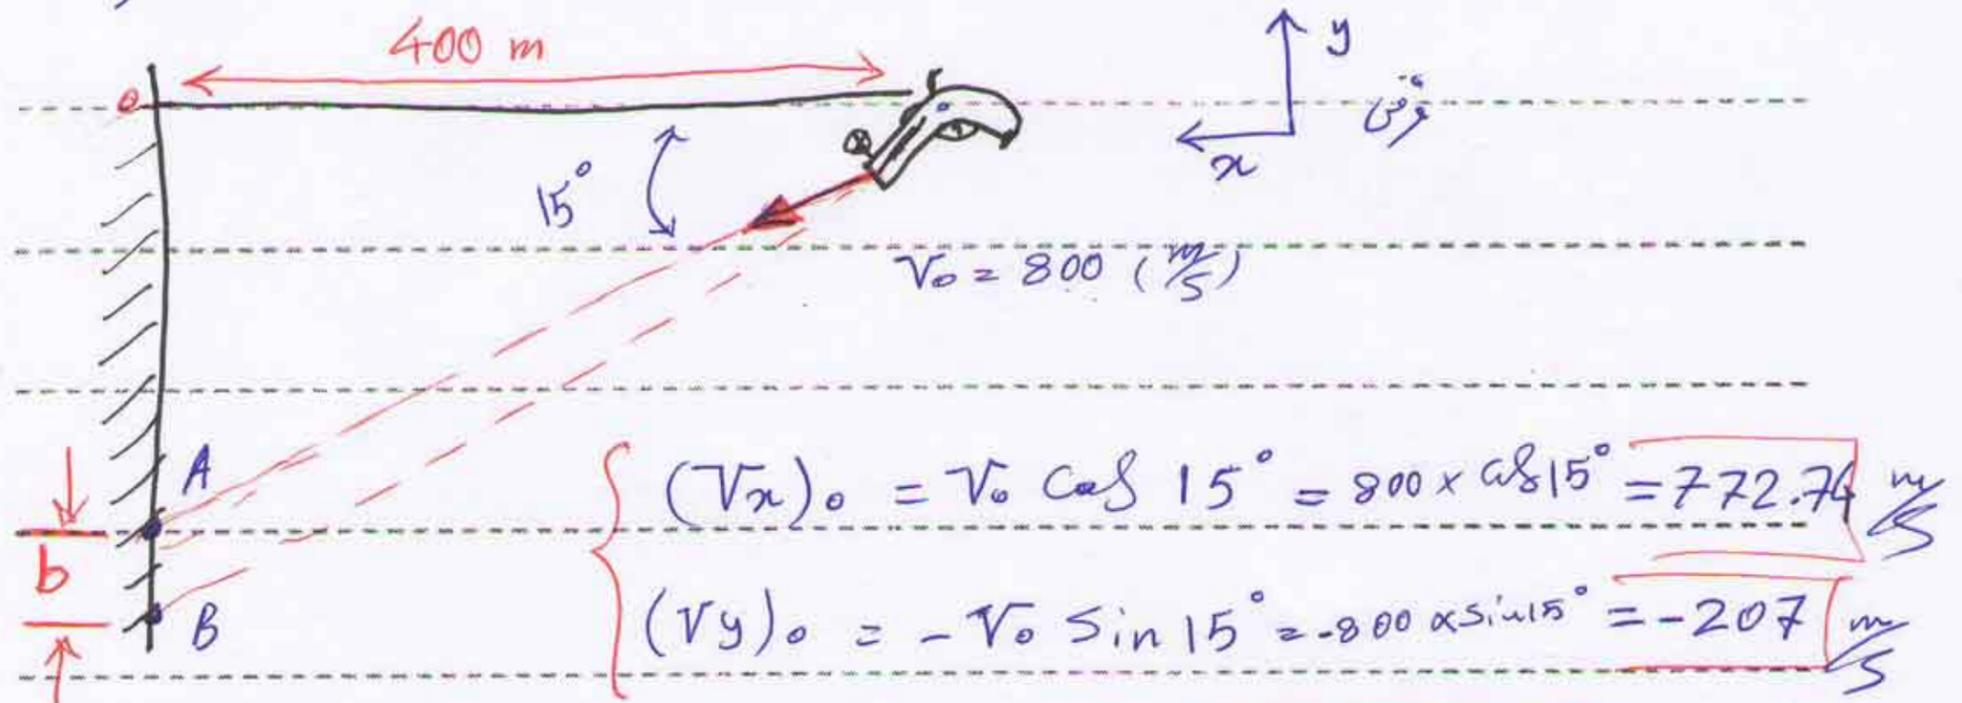 400 m
y
فرض
x
15°
V₀ = 800 (m/s)
A
b
B
(Vx)₀ = V₀ Cos 15° = 800 × cos 15° = 772.74 m/s
(Vy)₀ = - V₀ Sin 15° = -800 × sin 15° = -207 m/s